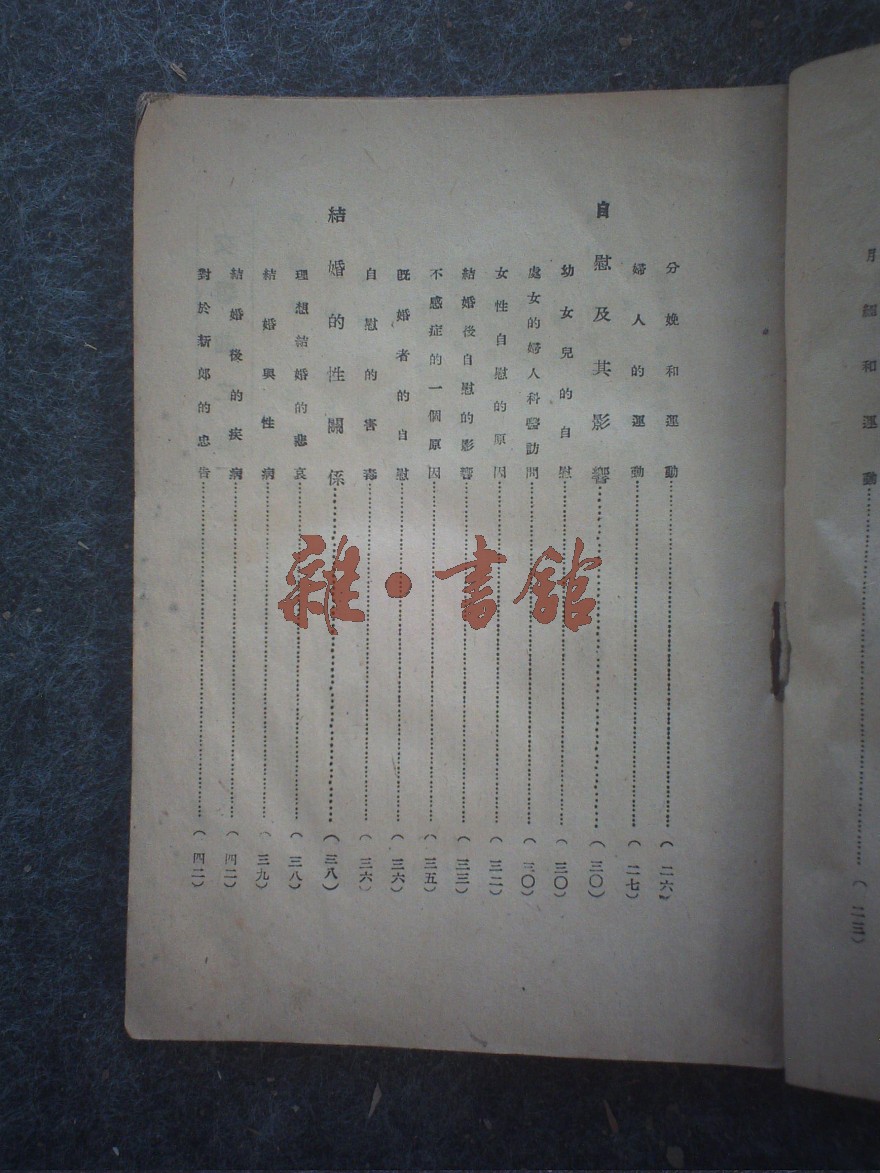 月經和運動……(二三)
分娩和運動……(二六)
婦人的運動……(二七)
自慰及其影響……(三〇)
幼女兒的自慰……(三〇)
處女的婦人科醫訪問……(三〇)
女性自慰的原因……(三二)
結婚後自慰的影響……(三三)
不感症的一個原因……(三五)
既婚者的自慰……(三六)
自慰的害毒……(三六)
結婚的性關係……(三八)
理想結婚的悲哀……(三八)
結婚與性病……(三九)
結婚後的疾病……(四二)
對於新郎的忠告……(四二)
雜·書館